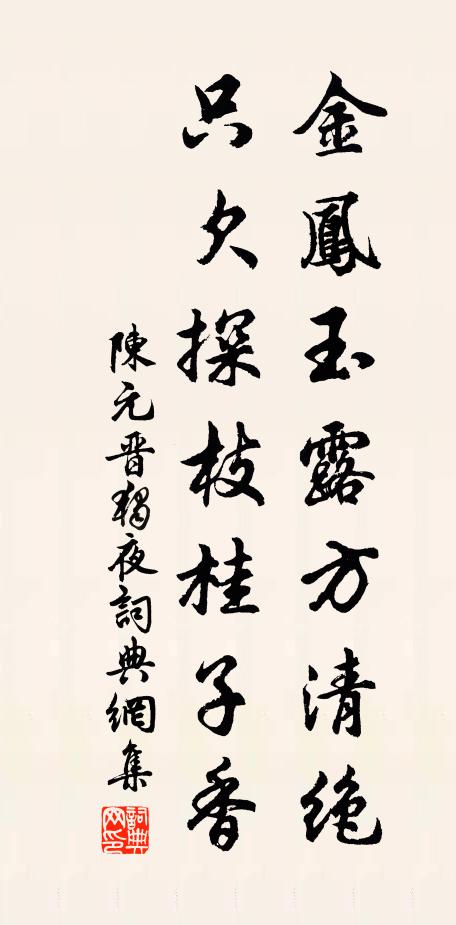 金鳳玉露方清絶
只欠探枝桂子香
陳元晋獨夜詞典網集
詞典网印